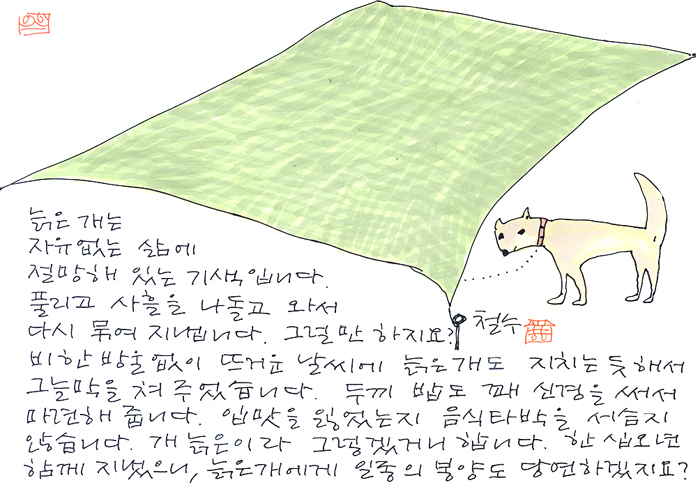 늙은 개는
자유없는 삶에
절망해 있는 기색입니다.
풀리고 사흘을 나돌고 와서
다시 묶여 지냅니다. 그럴만 하지요? 철수
비 한 방울 없이 뜨거운 날씨에 늙은개도 지치는 듯해서
그늘막을 쳐 주었습니다. 두끼 밥도 꽤 신경을 써서
마련해 줍니다. 입맛을 잃었는지 음식타박을 서슴지
않습니다. 개 늙은이라 그렇겠거니 합니다. 한 십오년
함께 지냈으니, 늙은개에게 일종의 봉양도 당연하겠지요?